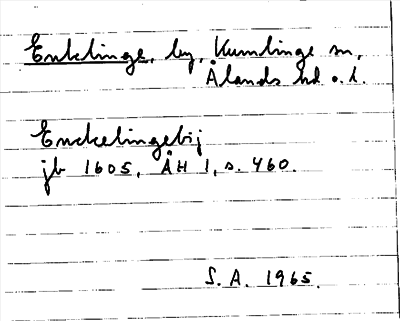 Enklinge, by, Kumlinge sn,
Ålands hd o. l.
Enckelingebij
jb 1605, ÅH 1, s. 460.
S. A. 1965.